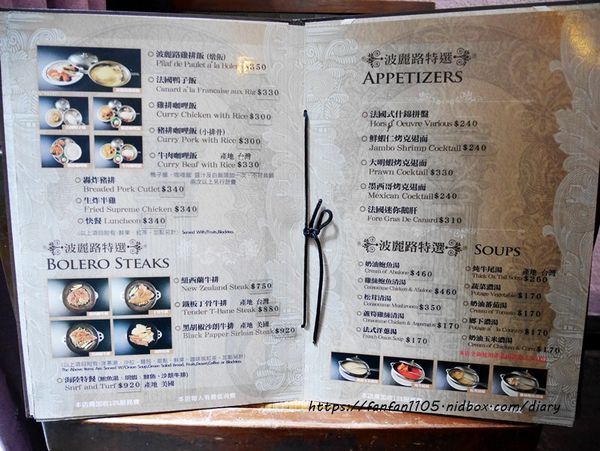 波麗路雞排飯 (燉飯)
Pilaf de Paulet a'la Bolero $350
法國鴨子飯
Canard a'la Francaise aux Riz $330
雞排咖哩飯
Curry Chicken with Rice $300
豬排咖哩飯 (小排骨)
Curry Pork with Rice $300
牛肉咖哩飯 產地 台灣
Curry Beef with Rice $330
轟炸豬排
Breaded Pork Cutlet $340
生炸半雞
Fried Supreme Chicken $340
快餐 Luncheon $340
波麗路特選
BOLERO STEAKS
紐西蘭牛排
New Zealand Steak $750
鐵板丁骨牛排 產地 台灣
Tender T-Bane Steak $880
黑胡椒沙朗牛排 產地 美國
Black Papper Sirloin Steak $920
海陸特餐 (鮑魚湯．明蝦．鮮魚．沙朗牛排)
Surf and Turf $920 產地 美國
本店需加收10%服務費
本店每人有最低消費
波麗路特選
APPETIZERS
法國式什錦拼盤
Hors d' Oeuvre Various $240
鮮蝦仁考克退而
Jambo Shrimp Cocktail $240
大明蝦考克退而
Prawn Cocktail $330
墨西哥考克退而
Mexican Cocktail $240
法國迷你鵝肝
Fore Gras De Canard $310
波麗路特選 SOUPS
奶油鮑魚湯
Cream of Abalone $460
雞絲鮑魚清湯
Consomme Chicken & Abalone $460
松茸清湯
Consomme Mushroom $350
蘆筍雞絲清湯
Consomme Chicken & Asparagus $170
法式洋蔥湯
French Onion Soup $170
燉牛尾湯 產地 台灣
Thick Ox Tail Soup $260
蔬菜濃湯
Potage Vegetable $170
奶油蕃茄湯
Cream of Tomato $170
鄉下濃湯
Potage a' la Country $170
奶油玉米濃湯
Cream of Chicken & Corn $170
https://fanfan1105.nidbox.com/diary